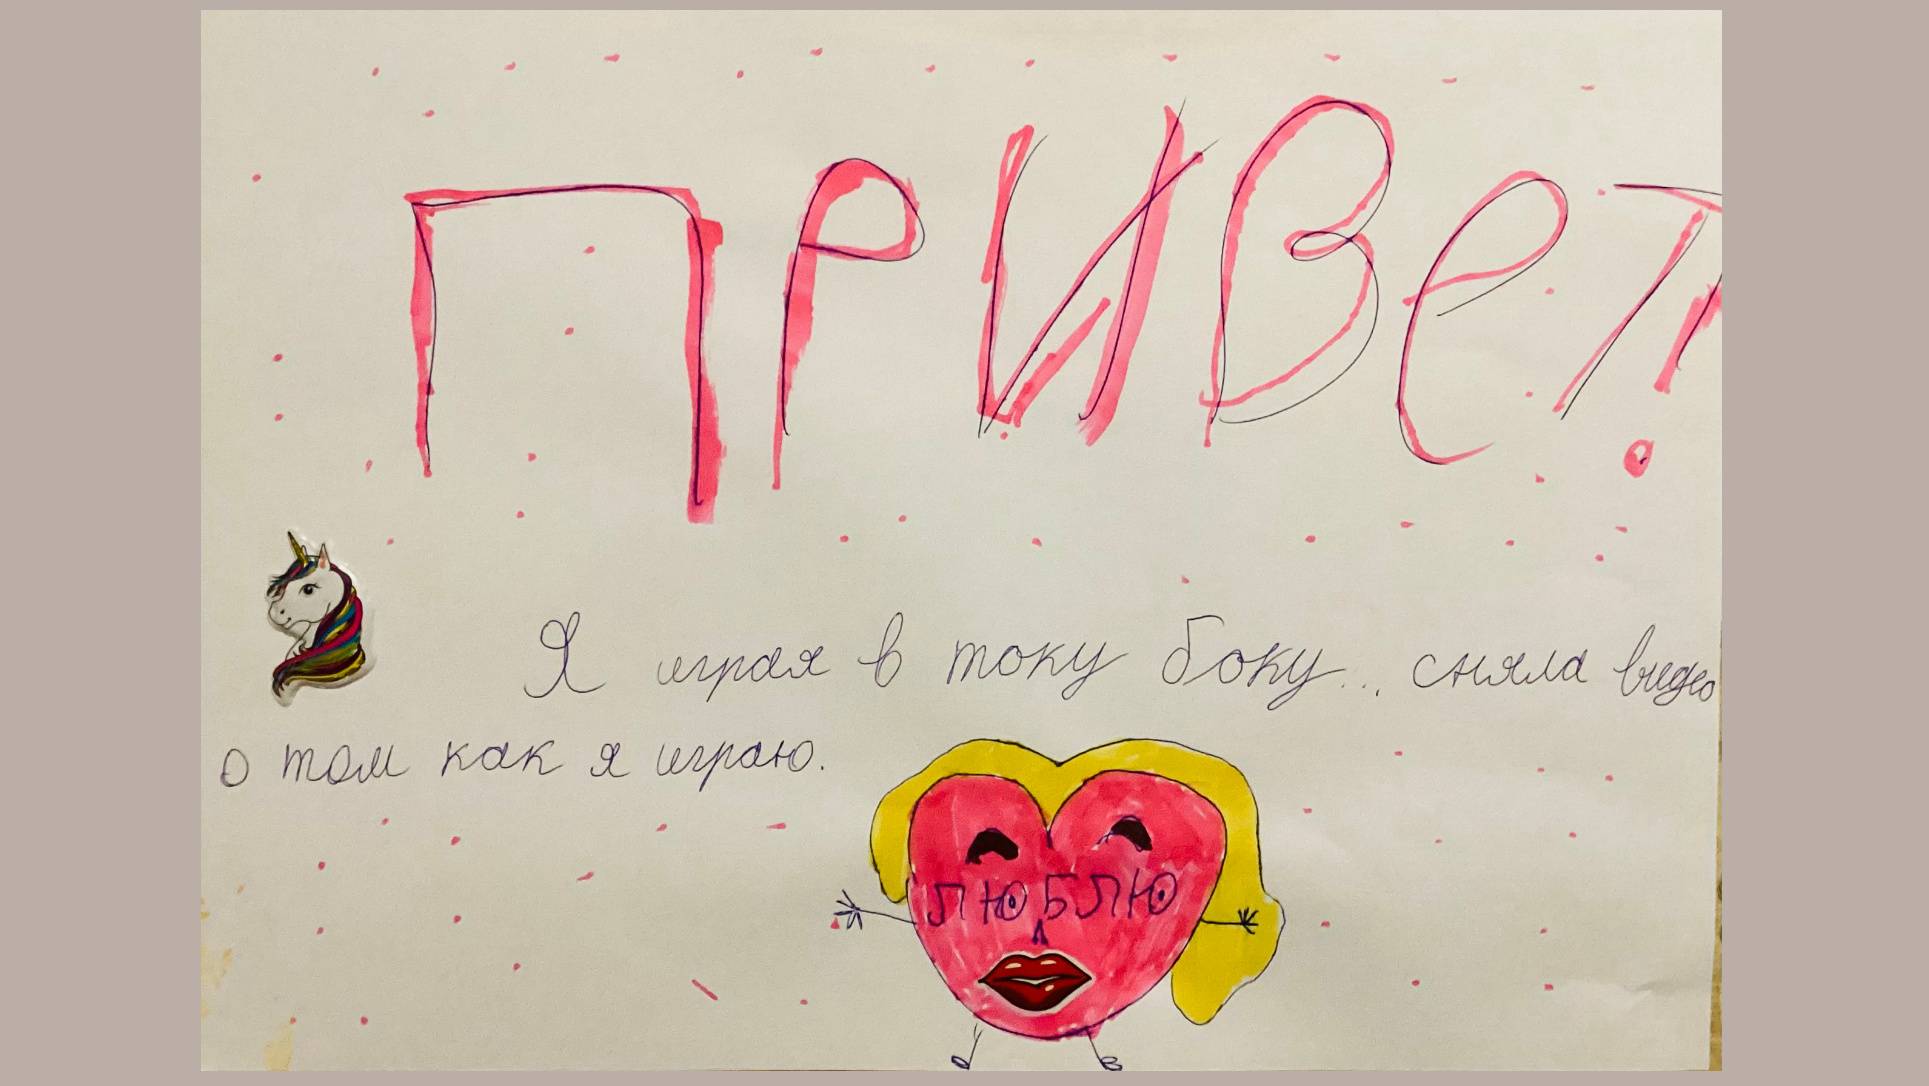 ПРИВеТ!
Я играя в току боку... сняла видео
о том как я играю.
ЛЮБЛЮ